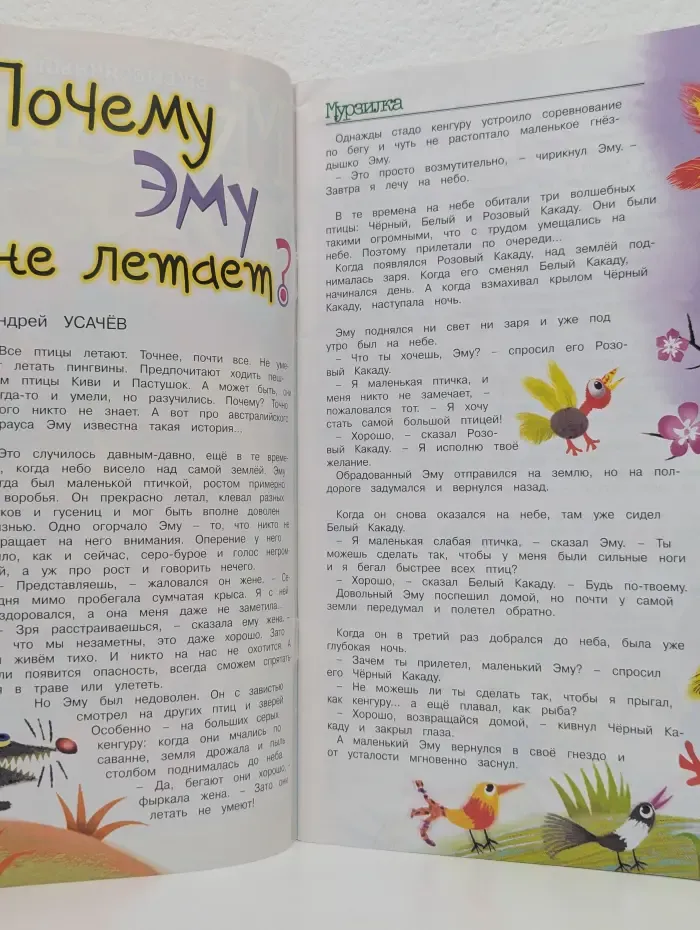 Почему
Эму
не летает?
ндрей УСАЧЁВ
Все птицы летают. Точнее, почти все. Не уме-
т летать пингвины. Предпочитают ходить пеш-
м птицы Киви и Пастушок. А может быть, они
гда-то и умели, но разучились. Почему? Точно
ого никто не знает. А вот про австралийского
рауса Эму известна такая история...
Это случилось давным-давно, ещё в те време-
, когда небо висело над самой землёй. Эму
гда был маленькой птичкой, ростом примерно
воробья. Он прекрасно летал, клевал разных
ков и гусениц и мог быть вполне доволен
знью. Одно огорчало Эму – то, что никто не
ращает на него внимания. Оперение у него
ло, как и сейчас, серо-бурое и голос негром-
й, а уж про рост и говорить нечего.
– Представляешь, – жаловался он жене. – Се-
дня мимо пробегала сумчатая крыса. Я с ней
здоровался, а она меня даже не заметила...
– Зря расстраиваешься, – сказала ему жена. –
что мы незаметны, это даже хорошо. Зато
живём тихо. И никто на нас не охотится. А
ли появится опасность, всегда сможем спрятать-
я в траве или улететь.
Но Эму был недоволен. Он с завистью
смотрел на других птиц и зверей.
Особенно – на больших серых
кенгуру: когда они мчались по
саванне, земля дрожала и пыль
столбом поднималась до неба.
– Да, бегают они хорошо, –
фыркала жена. – Зато они
летать не умеют!
Мурзилка
Однажды стадо кенгуру устроило соревнование
по бегу и чуть не растоптало маленькое гнёз-
дышко Эму.
– Это просто возмутительно, – чирикнул Эму. –
Завтра я лечу на небо.
В те времена на небе обитали три волшебных
птицы: Чёрный, Белый и Розовый Какаду. Они были
такими огромными, что с трудом умещались на
небе. Поэтому прилетали по очереди...
Когда появлялся Розовый Какаду, над землёй под-
нималась заря. Когда его сменял Белый Какаду,
начинался день. А когда взмахивал крылом Чёрный
Какаду, наступала ночь.
Эму поднялся ни свет ни заря и уже под
утро был на небе.
– Что ты хочешь, Эму? – спросил его Розо-
вый Какаду.
– Я маленькая птичка, и
меня никто не замечает, –
пожаловался тот. – Я хочу
стать самой большой птицей!
– Хорошо, – сказал Розо-
вый Какаду. – Я исполню твоё
желание.
Обрадованный Эму отправился на землю, но на пол-
дороге задумался и вернулся назад.
Когда он снова оказался на небе, там уже сидел
Белый Какаду.
– Я маленькая слабая птичка, – сказал Эму. – Ты
можешь сделать так, чтобы у меня были сильные ноги
и я бегал быстрее всех птиц?
– Хорошо, – сказал Белый Какаду. – Будь по-твоему.
Довольный Эму поспешил домой, но почти у самой
земли передумал и полетел обратно.
Когда он в третий раз добрался до неба, была уже
глубокая ночь.
– Зачем ты прилетел, маленький Эму? – спросил
его Чёрный Какаду.
– Не можешь ли ты сделать так, чтобы я прыгал,
как кенгуру... а ещё плавал, как рыба?
– Хорошо, возвращайся домой, – кивнул Чёрный Ка-
каду и закрыл глаза.
А маленький Эму вернулся в своё гнездо и
от усталости мгновенно заснул.